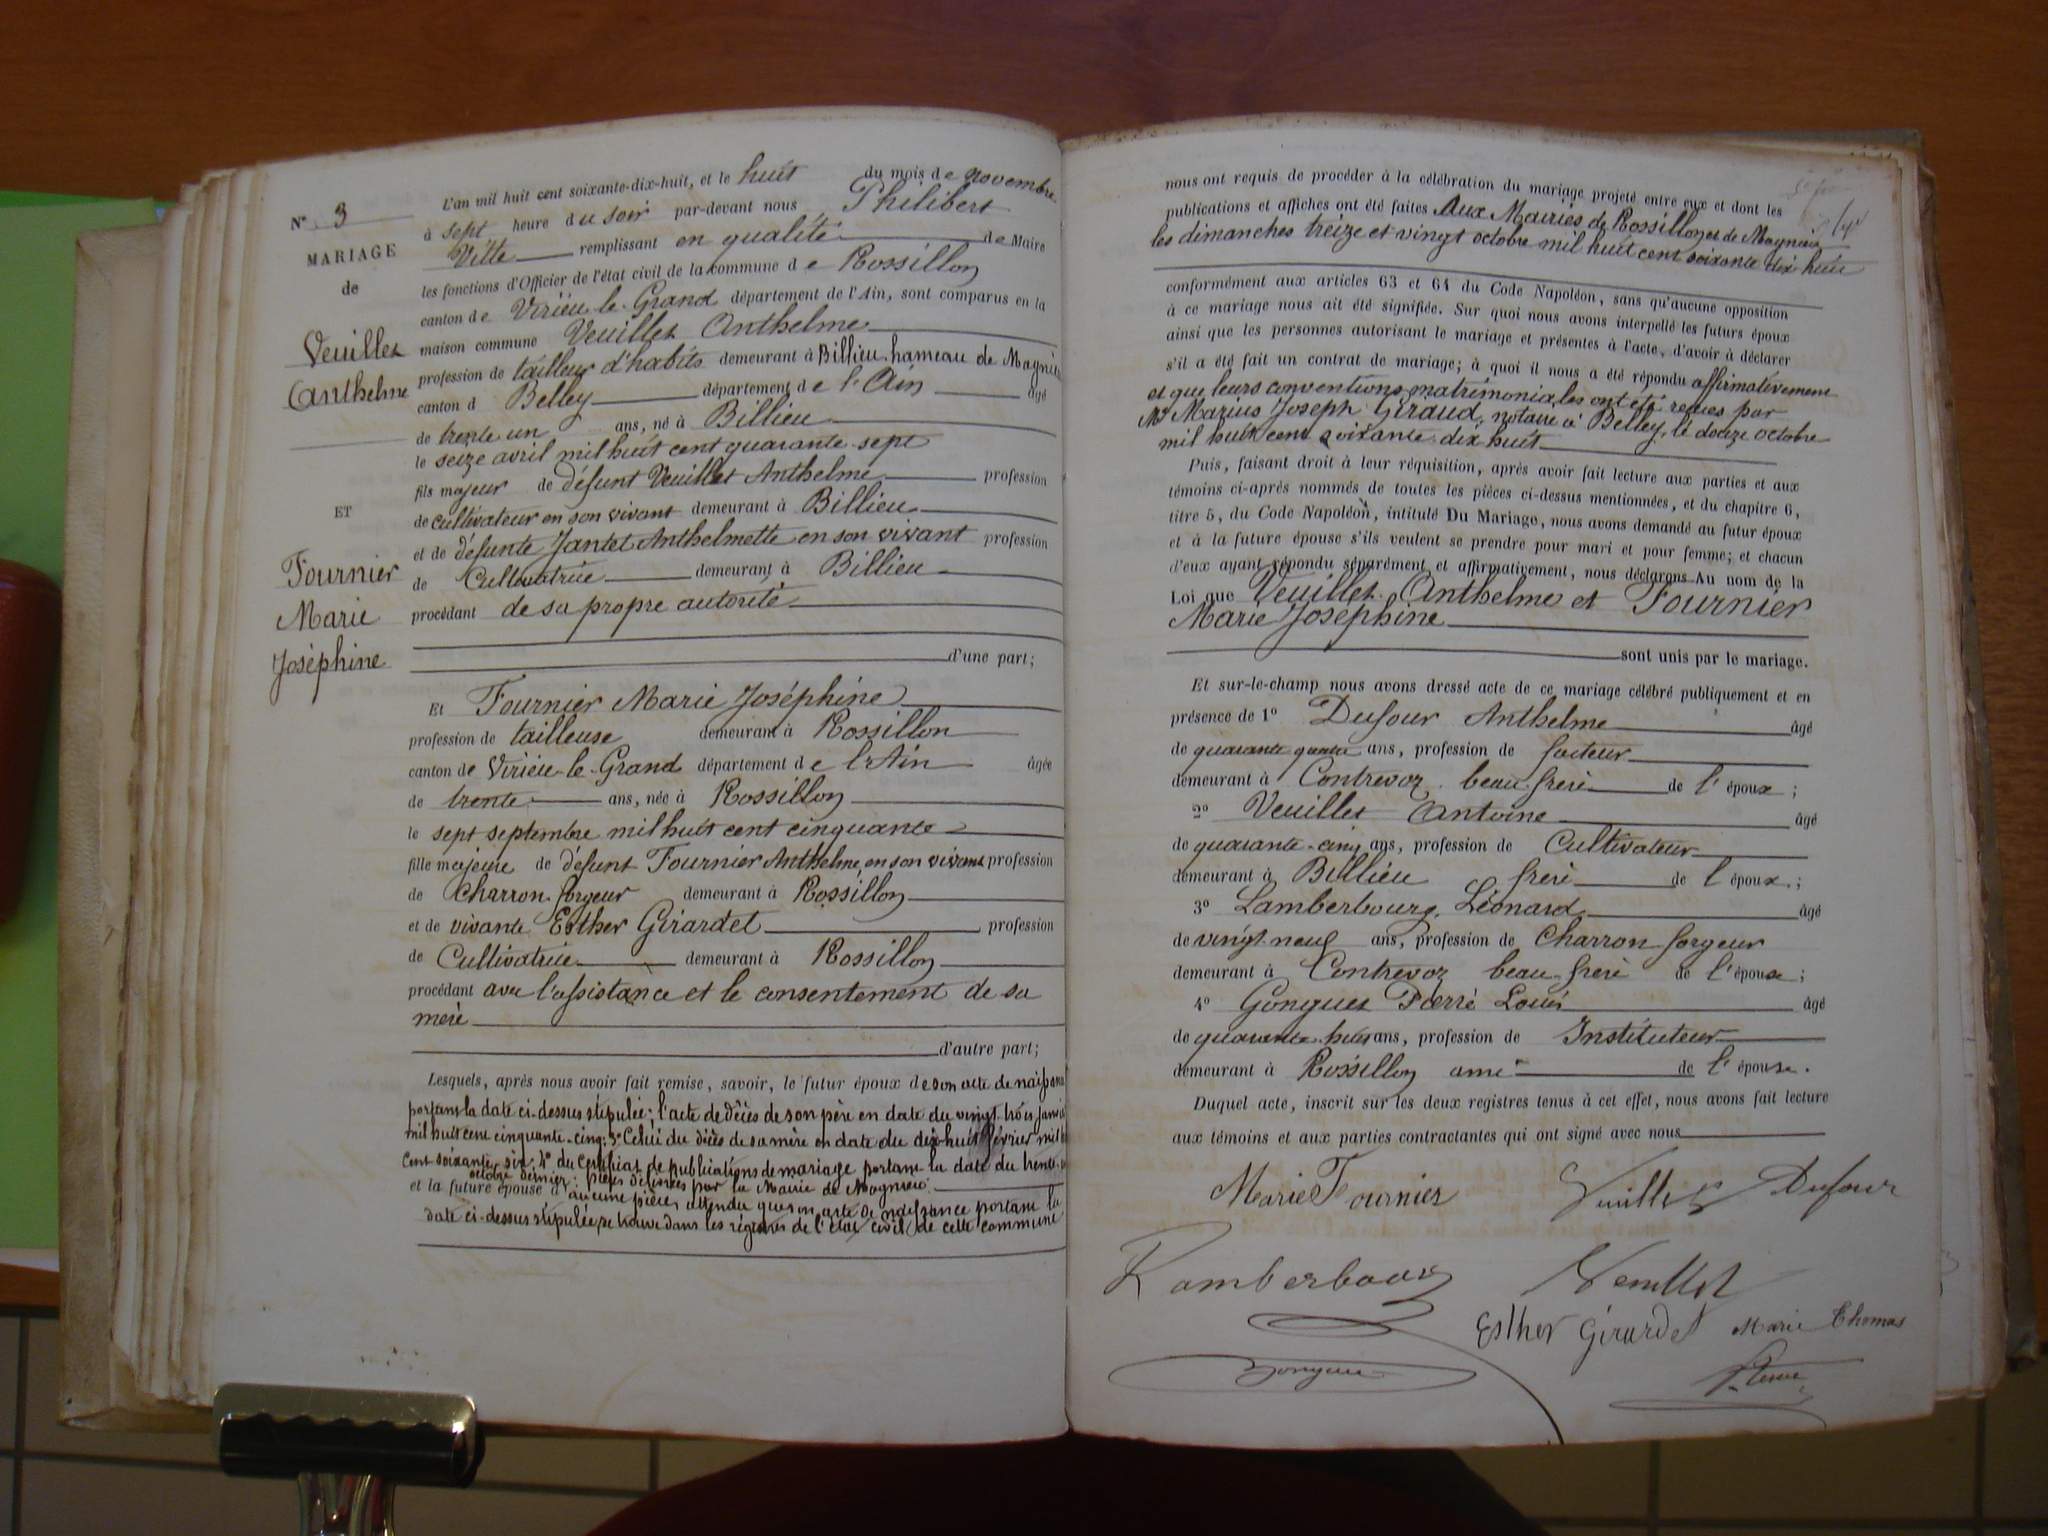 N° 3
MARIAGE
de
Veuillet
Anthelme
ET
Fournier
Marie
Joséphine
L'an mil huit cent soixante-dix-huit, et le huit du mois de novembre
à sept heure du soir par-devant nous Philibert
Vitte remplissant en qualité de Maire
les fonctions d'Officier de l'état civil de la commune de Rossillon
canton de Virieu-le-Grand département de l'Ain, sont comparus en la
maison commune Veuillet Anthelme
profession de tailleur d'habits demeurant à Billieu hameau de Magnieu
canton d Belley département de l'Ain âgé
de trente un ans, né à Billieu
le seize avril mil huit cent quarante sept
fils majeur de défunt Veuillet Anthelme profession
de cultivateur en son vivant demeurant à Billieu
et de défunte Jantet Anthelmette en son vivant profession
de Cultivatrice demeurant à Billieu
procédant de sa propre autorité
d'une part;
Et Fournier Marie Joséphine
profession de tailleuse demeurant à Rossillon
canton de Virieu-le-Grand département de l'Ain âgée
de trente ans, née à Rossillon
le sept septembre mil huit cent cinquante
fille majeure de défunt Fournier Anthelme, en son vivant profession
de Charron forgeur demeurant à Rossillon
et de vivante Esther Girardet profession
de Cultivatrice demeurant à Rossillon
procédant avec l'assistance et le consentement de sa
mère
d'autre part;
Lesquels, après nous avoir fait remise, savoir, le futur époux de son acte de naissance
portant la date ci-dessus stipulée; l'acte de décès de son père en date du vingt trois janvier
mil huit cent cinquante-cinq; 3° Celui du décès de sa mère en date du dix-huit février mil
cent soixante six; 4° du certificat de publications de mariage portant la date du trente
octobre dernier; pièces délivrées par la Mairie de Magnieu
et la future épouse d'aucune pièce, attendu que son acte de naissance portant la
date ci-dessus stipulée, se trouve dans les régistres de l'état civil de cette commune
nous ont requis de procéder à la célébration du mariage projeté entre eux et dont les
publications et affiches ont été faites Aux Mairies de Rossillon et de Magnieu
les dimanches treize et vingt octobre mil huit cent soixante dix huit
conformément aux articles 63 et 64 du Code Napoléon, sans qu'aucune opposition
à ce mariage nous ait été signifiée. Sur quoi nous avons interpellé les futurs époux
ainsi que les personnes autorisant le mariage et présentes à l'acte, d'avoir à déclarer
s'il a été fait un contrat de mariage; à quoi il nous a été répondu affirmativement
et que leurs conventions matrimoniales ont été reçues par
Me Marius Joseph Giraud, notaire à Belley, le douze octobre
mil huit cent soixante dix huit
Puis, faisant droit à leur réquisition, après avoir fait lecture aux parties et aux
témoins ci-après nommés de toutes les pièces ci-dessus mentionnées, et du chapitre 6,
titre 5, du Code Napoléon, intitulé Du Mariage, nous avons demandé au futur époux
et à la future épouse s'ils veulent se prendre pour mari et pour femme; et chacun
d'eux ayant répondu séparément et affirmativement, nous déclarons Au nom de la
Loi que Veuillet Anthelme et Fournier
Marie Joséphine
sont unis par le mariage.
Et sur-le-champ nous avons dressé acte de ce mariage célébré publiquement et en
présence de 1° Dufour Anthelme âgé
de quarante quatre ans, profession de facteur
demeurant à Contrevoz beau-frère de l'époux;
2° Veuillet Antoine âgé
de quarante-cinq ans, profession de Cultivateur
demeurant à Billieu frère de l'époux;
3° Lamberbourg Léonard âgé
de vingt neuf ans, profession de Charron forgeur
demeurant à Contrevoz beau-frère de l'épouse;
4° Gonguet Pierre Louis âgé
de quarante-huit ans, profession de Instituteur
demeurant à Rossillon ami de l'épouse.
Duquel acte, inscrit sur les deux registres tenus à cet effet, nous avons fait lecture
aux témoins et aux parties contractantes qui ont signé avec nous
Marie Fournier Veuillet Dufour
Veuillet
Esther Girardet Marie Thomas